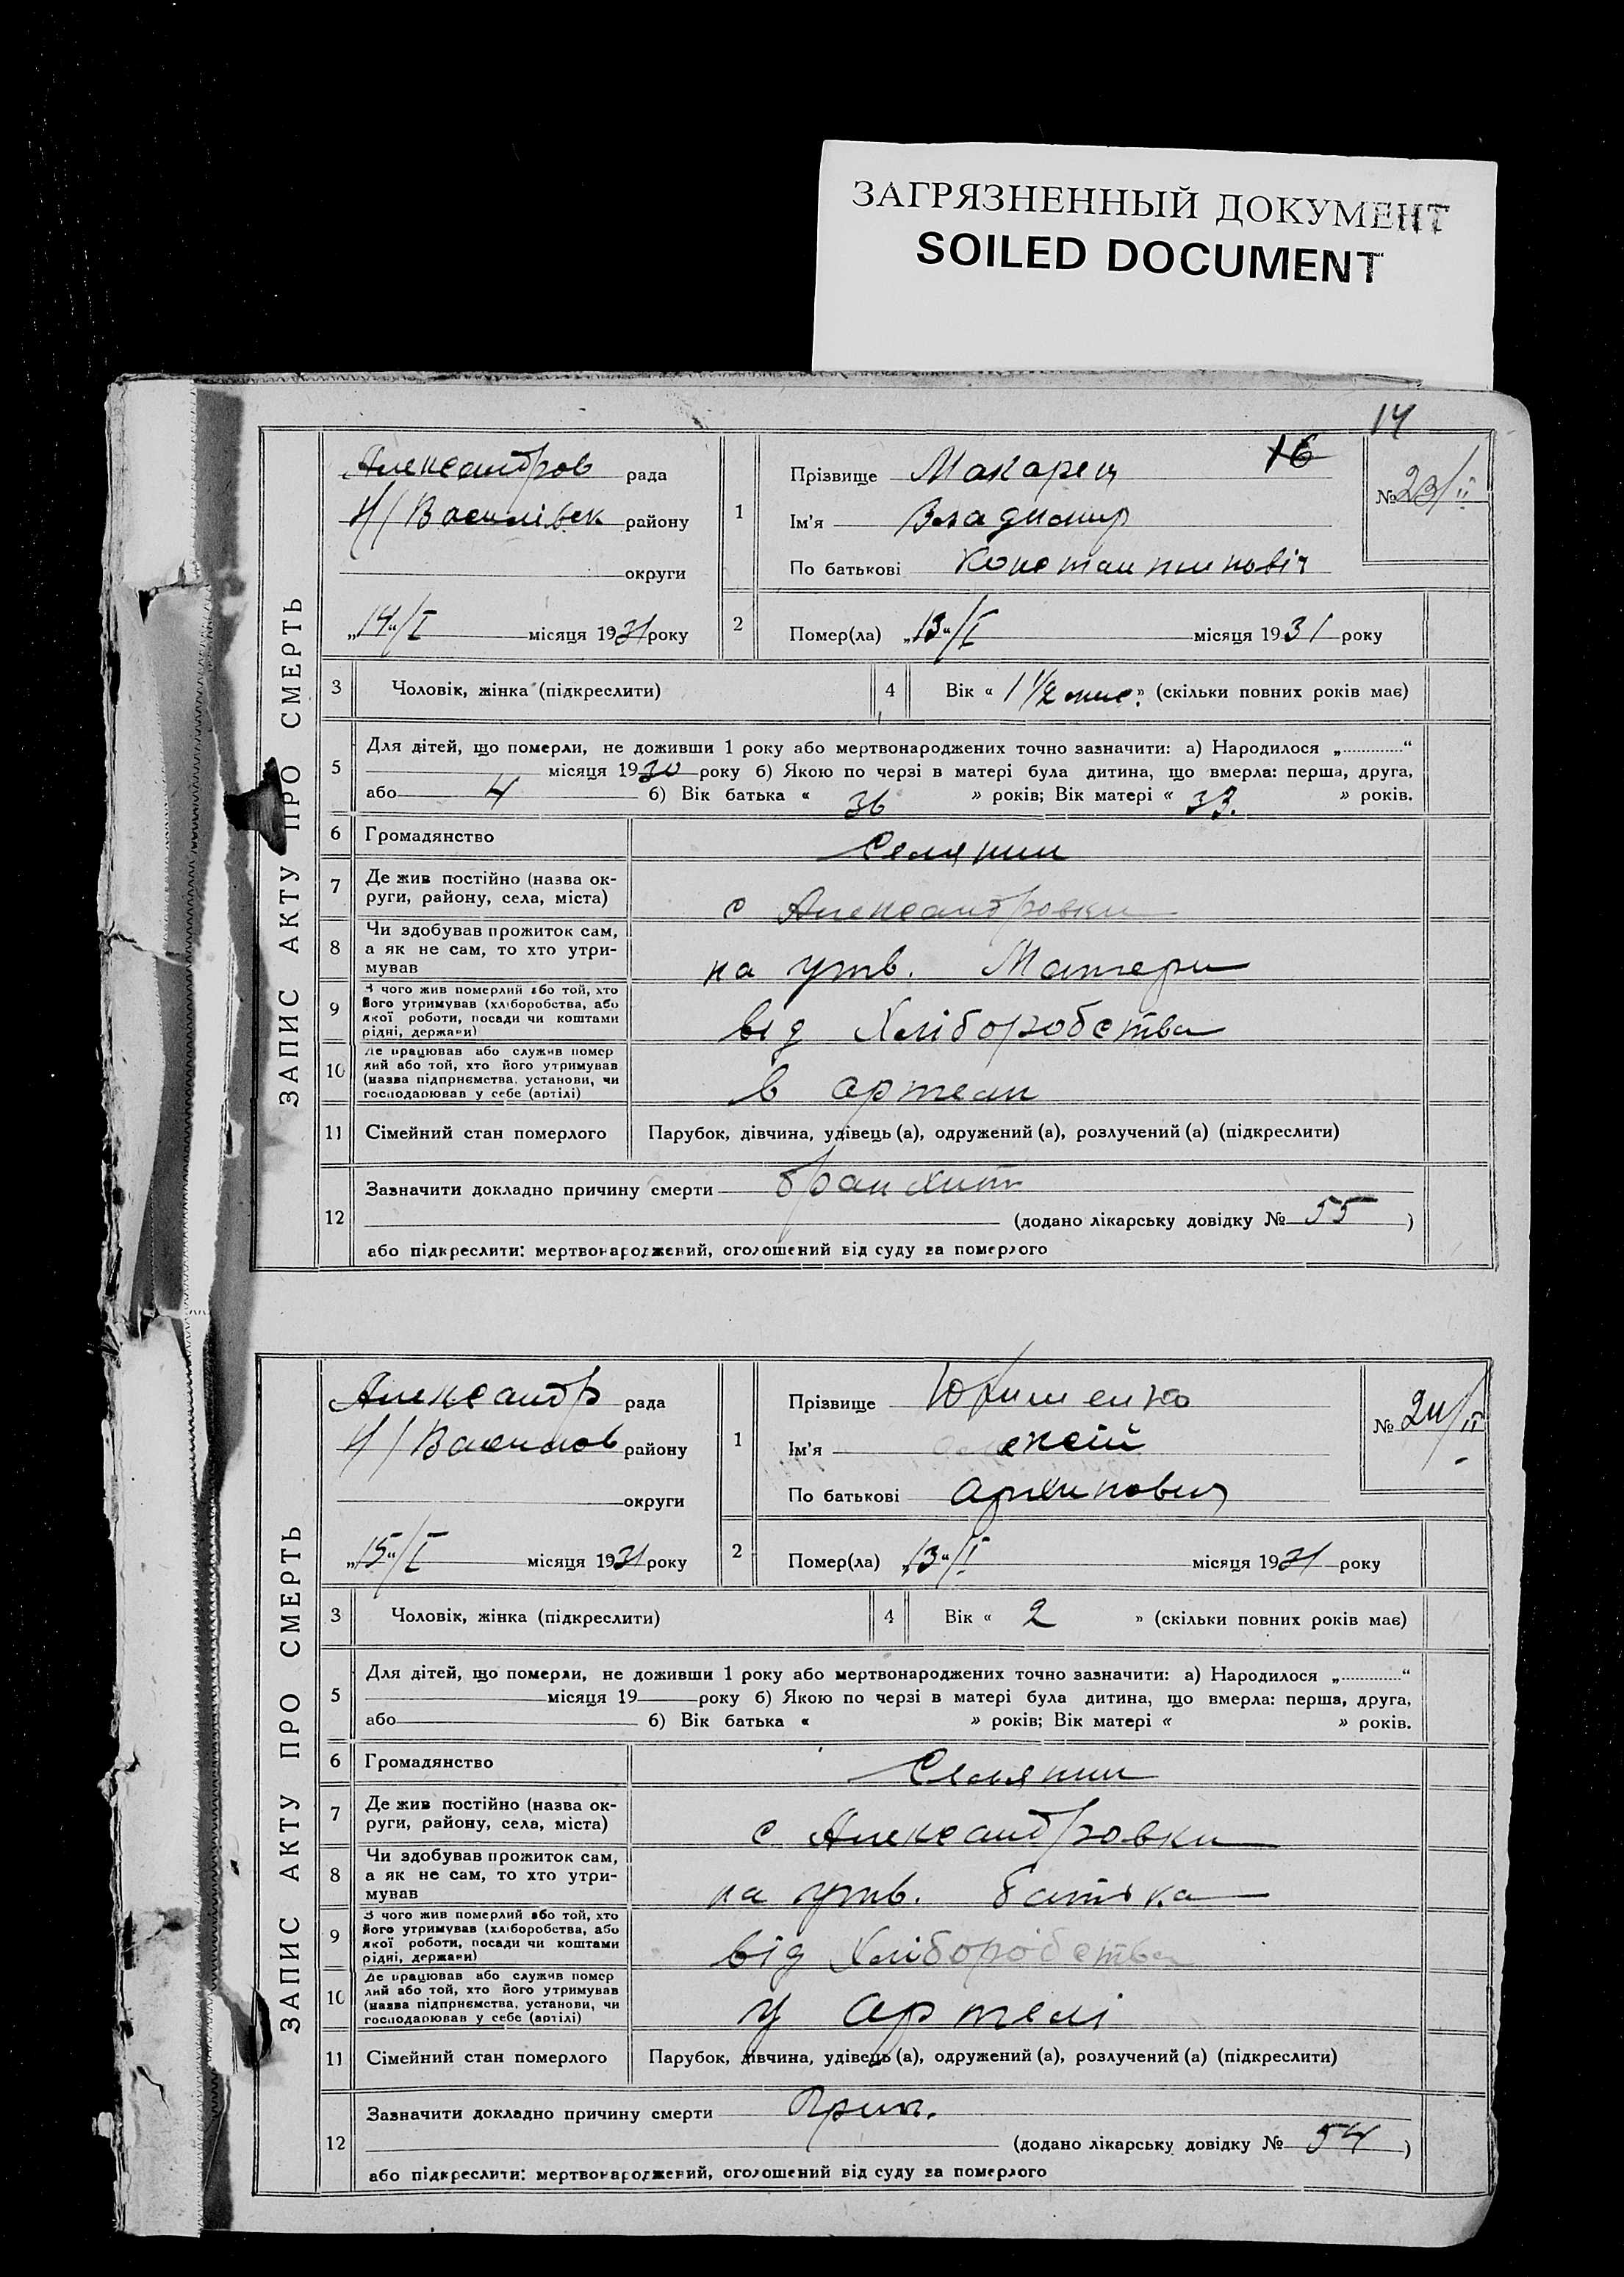 ЗАГРЯЗНЕННЫЙ ДОКУМЕНТ
SOILED DOCUMENT
14
16
ЗАПИС АКТУ ПРО СМЕРТЬ
Александров рада
Н/Василівск району
округи
„14“/I місяця 1931 року
1
Прізвище Макарец
Ім'я Владимир
По батькові Константиновіч
№ 23/II
2
Помер(ла) „13“/I місяця 1931 року
3 Чоловік, жінка (підкреслити)
4 Вік « 1 1/2 » (скільки повних років має)
5 Для дітей, що померли, не доживши 1 року або мертвонароджених точно зазначити: а) Народилося „ “
місяця 1930 року б) Якою по черзі в матері була дитина, що вмерла: перша, друга,
або 4 б) Вік батька « 36 » років; Вік матері « 33. » років.
6 Громадянство Селянин
7 Де жив постійно (назва ок-
руги, району, села, міста) с Александровки
8 Чи здобував прожиток сам,
а як не сам, то хто утри-
мував на утв. Матери
9 З чого жив померлий або той, хто
його утримував (хліборобства, або
якої роботи, посади чи коштами
рідні, держави) від Хліборобства
10 Де працював або служив помер
лий або той, хто його утримував
(назва підприємства, установи, чи
господарював у себе (артілі) в артели
11 Сімейний стан померлого Парубок, дівчина, удівець (а), одружений (а), розлучений (а) (підкреслити)
12 Зазначити докладно причину смерти бранхит
(додано лікарську довідку № 55 )
або підкреслити: мертвонароджений, оголошений від суду за померлого
ЗАПИС АКТУ ПРО СМЕРТЬ
Александр рада
Н/Василов району
округи
„15“/I місяця 1931 року
1
Прізвище Юрищенко
Ім'я Олексій
По батькові Архипович
№ 24/II
2
Помер(ла) „13“/I місяця 1931 року
3 Чоловік, жінка (підкреслити)
4 Вік « 2 » (скільки повних років має)
5 Для дітей, що померли, не доживши 1 року або мертвонароджених точно зазначити: а) Народилося „ “
місяця 19 року б) Якою по черзі в матері була дитина, що вмерла: перша, друга,
або б) Вік батька « » років; Вік матері « » років.
6 Громадянство Селянин
7 Де жив постійно (назва ок-
руги, району, села, міста) с. Александровки
8 Чи здобував прожиток сам,
а як не сам, то хто утри-
мував на утв. батька
9 З чого жив померлий або той, хто
його утримував (хліборобства, або
якої роботи, посади чи коштами
рідні, держави) від Хліборобства
10 Де працював або служив помер
лий або той, хто його утримував
(назва підприємства, установи, чи
господарював у себе (артілі) у артелі
11 Сімейний стан померлого Парубок, дівчина, удівець (а), одружений (а), розлучений (а) (підкреслити)
12 Зазначити докладно причину смерти Грип.
(додано лікарську довідку № 54 )
або підкреслити: мертвонароджений, оголошений від суду за померлого